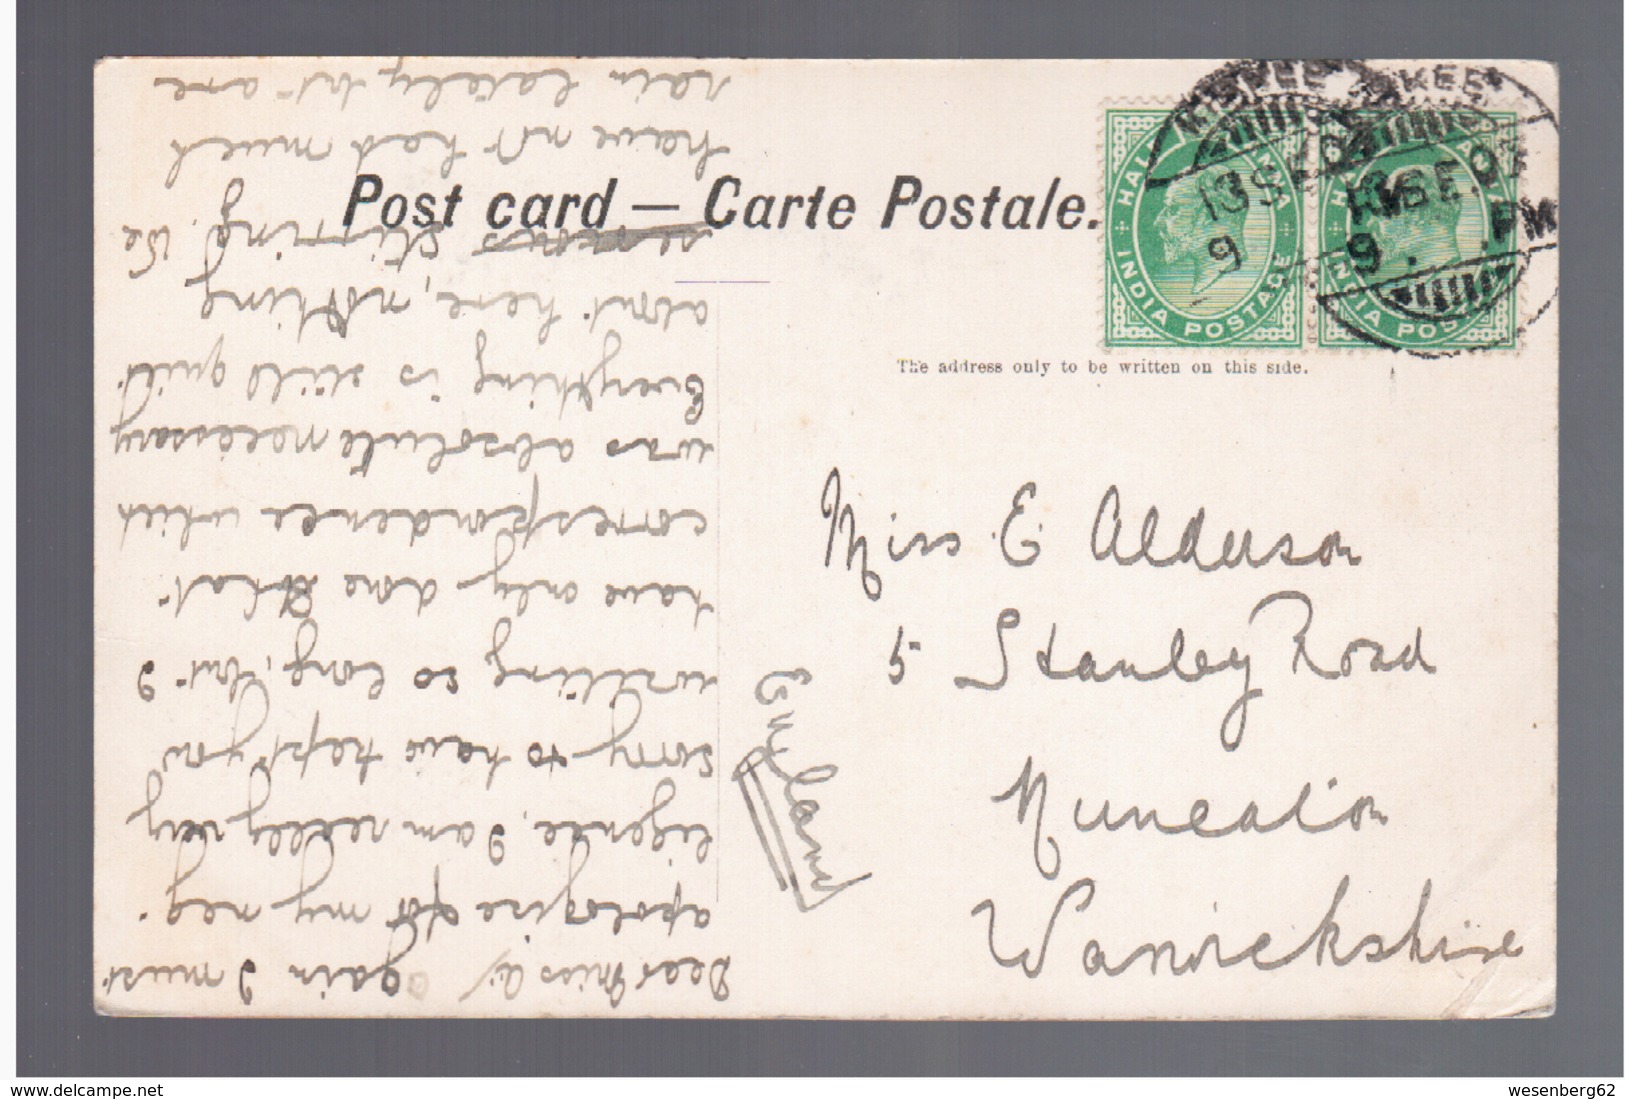 Post card — Carte Postale.
HALF ANNA
INDIA POSTAGE
13 SE 07
9
HALF ANNA
INDIA POSTAGE
13 SE 07
9 . PM
The address only to be written on this side.
Miss E. Alderson
5 Stanley Road
Nuneaton
Warwickshire
England
Dear Miss A, again I must
apologise for my neg-
ligence, I am really very
sorry to have kept you
waiting so long, but I
have only done that
correspondence which
was absolute necessary
Everything is still quiet
about here, nothing
stirring. We
have not had much
rain lately but are
delcampe.net
wesenberg62